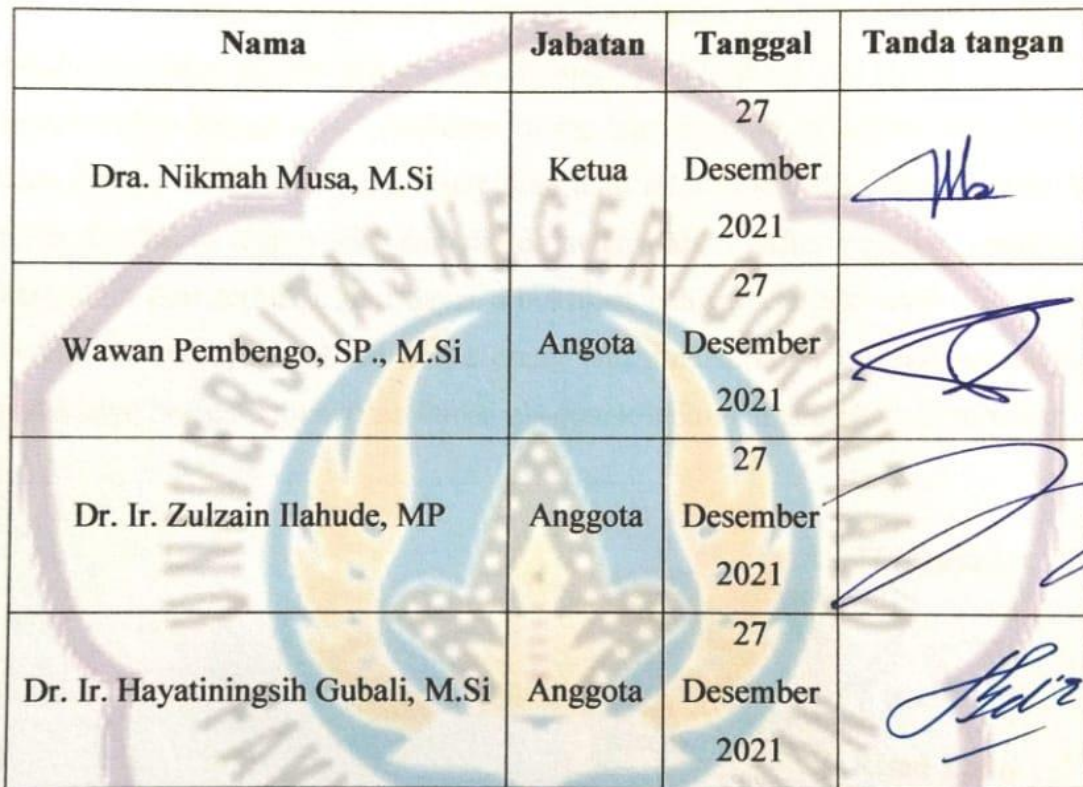 Nama Jabatan Tanggal Tanda tangan
27
Dra. Nikmah Musa, M.Si Ketua Desember
2021
27
Wawan Pembengo, SP., M.Si Angota Desember
2021
27
Dr. Ir. Zulzain Ilahude, MP Anggota Desember
2021
27
Dr. Ir. Hayatiningsih Gubali, M.Si Anggota Desember
2021
UNIVERSITAS NEGERI GORONTALO